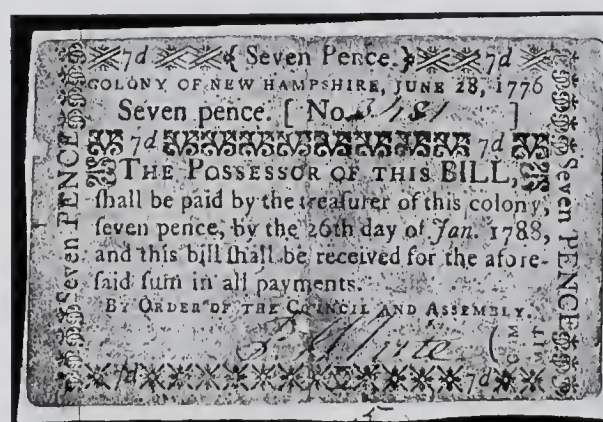 7d { Seven Pence. } 7d
COLONY OF NEW HAMPSHIRE, JUNE 28, 1776
Seven pence. [ No ]
7d 7d
THE POSSESSOR OF THIS BILL,
ſhall be paid by the treaſurer of this colony,
ſeven pence, by the 26th day of Jan. 1788,
and this bill ſhall be received for the afore-
ſaid ſum in all payments.
BY ORDER OF THE COUNCIL AND ASSEMBLY.
7d 7d
Seven PENCE
Seven PENCE